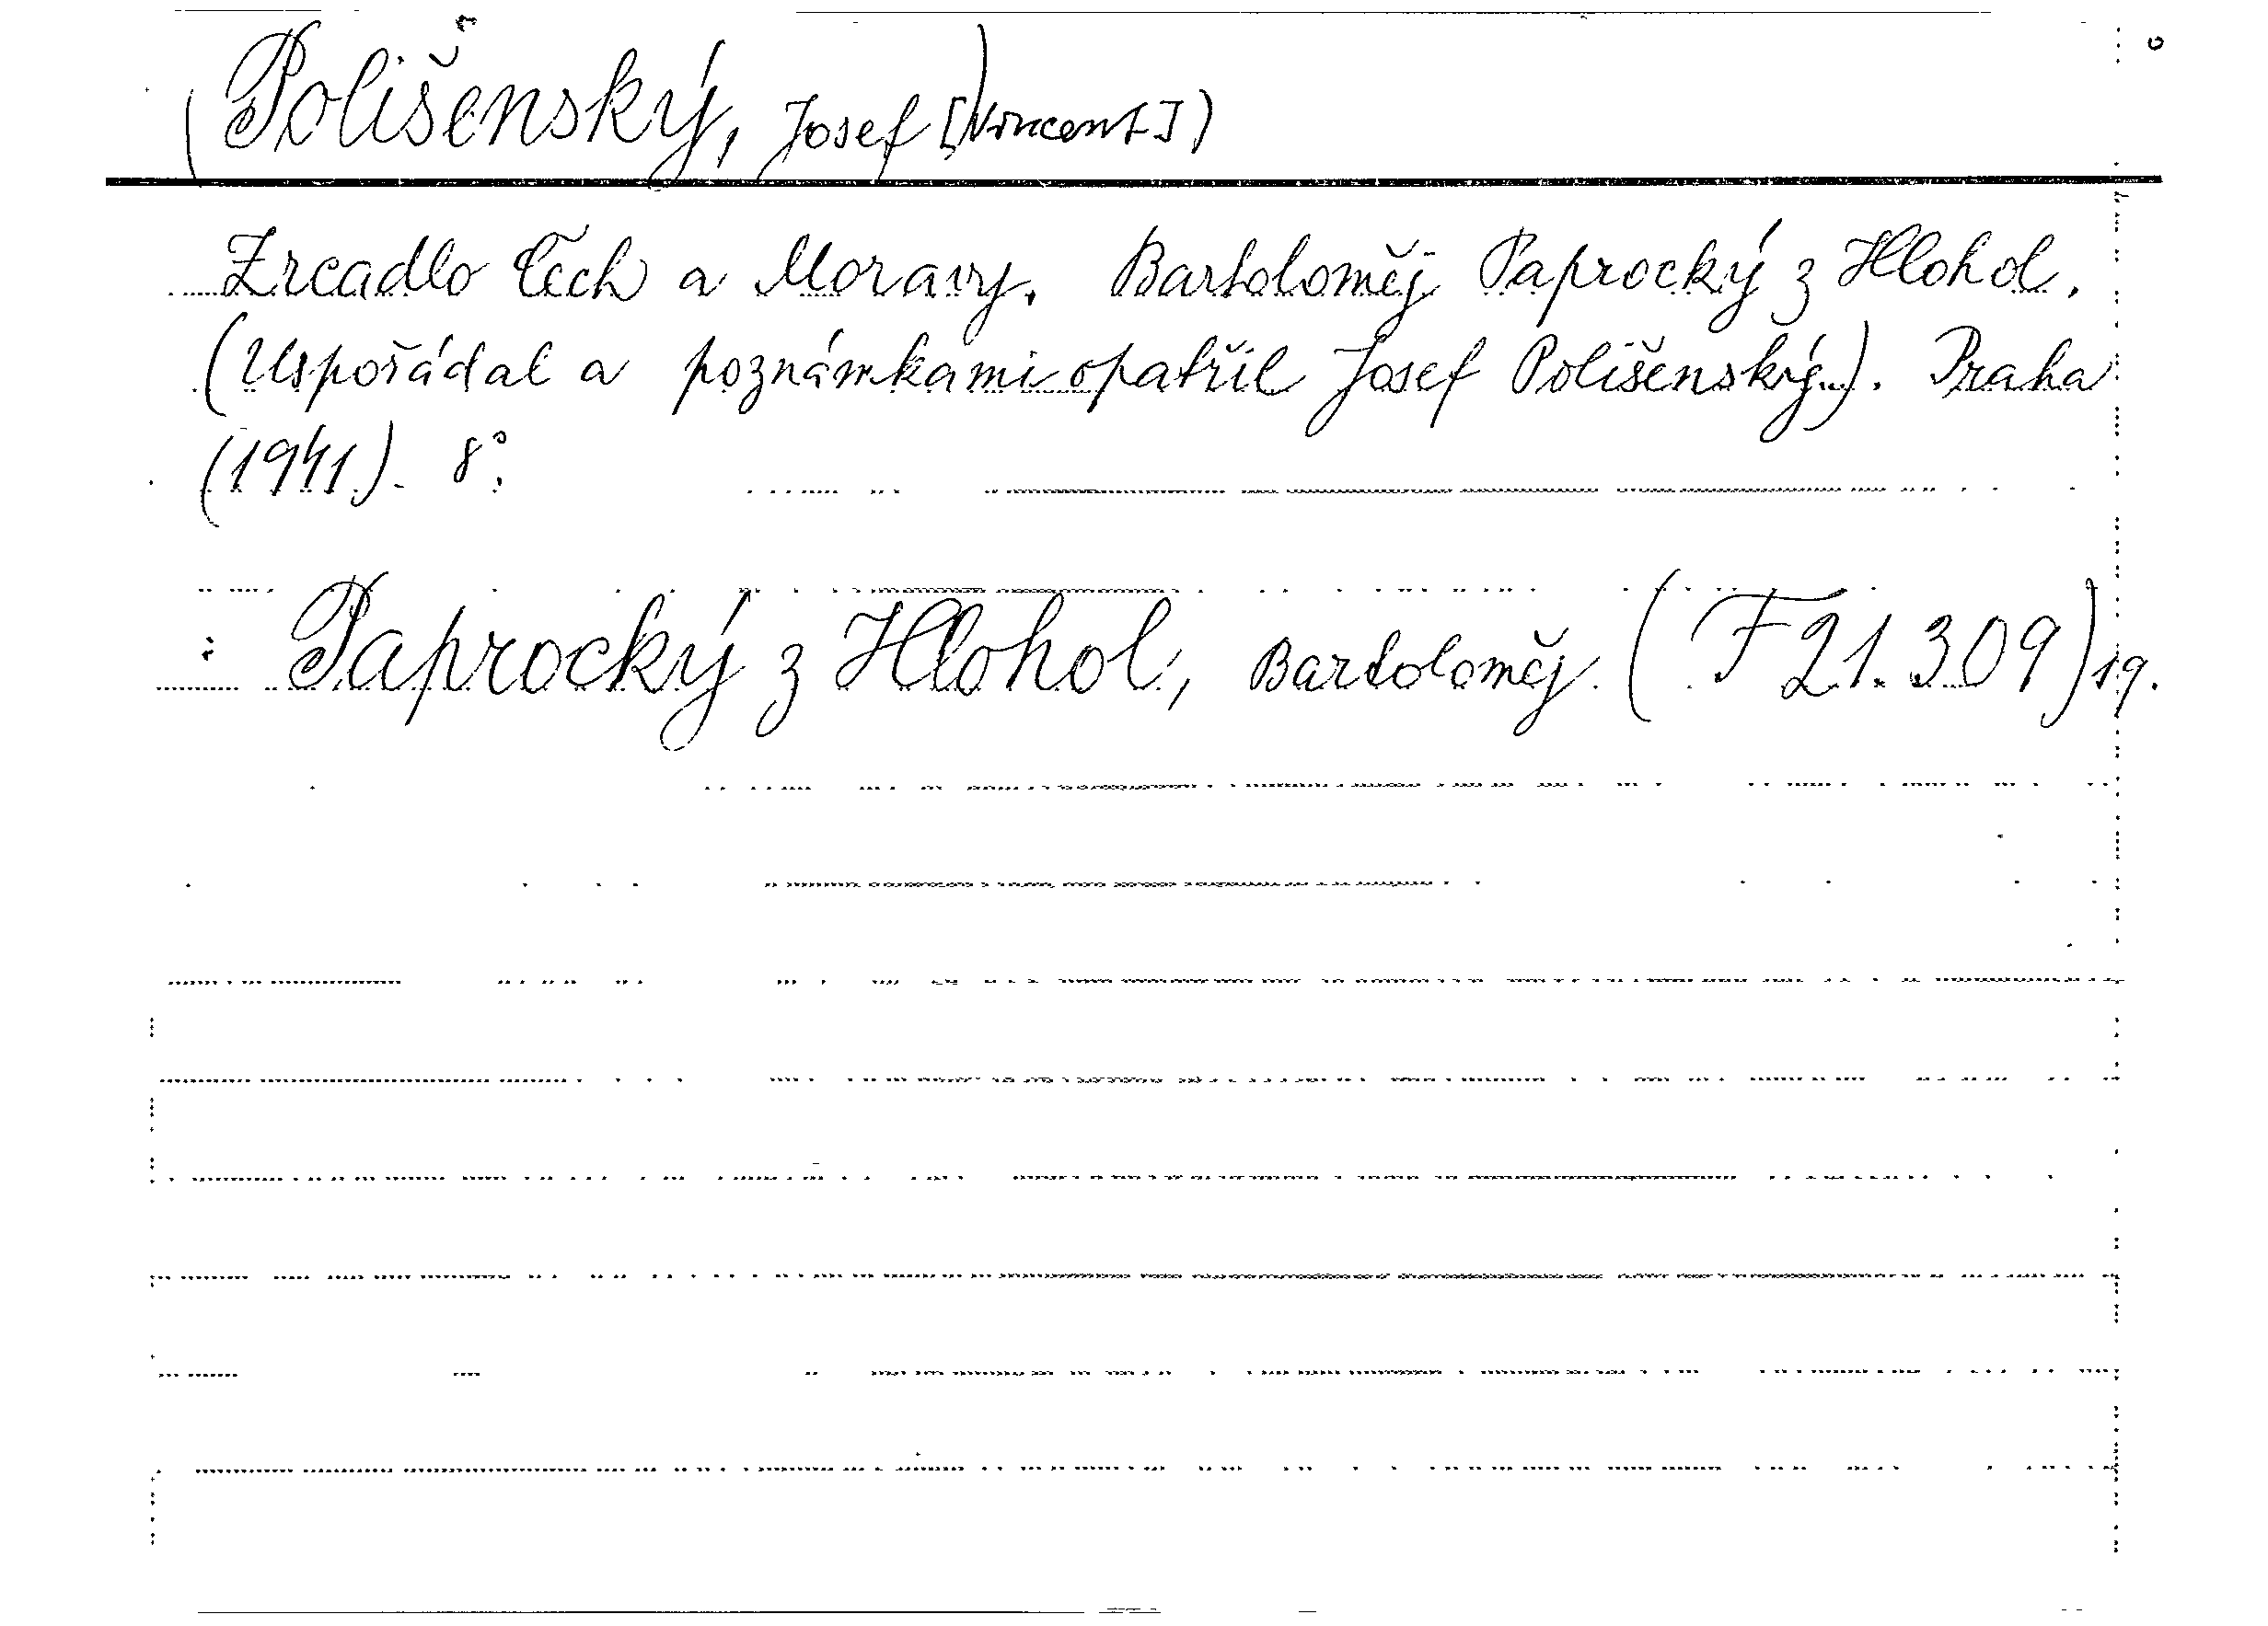 (Polišenský, Josef) [Vincent])
Zrcadlo Čech a Moravy. Bartoloměj Paprocký z Hlohol.
(Uspořádal a poznámkami opatřil Josef Polišenský). Praha
(1941). 8°.
: Paprocký z Hlohol, Bartoloměj. (F 21.309) 19.